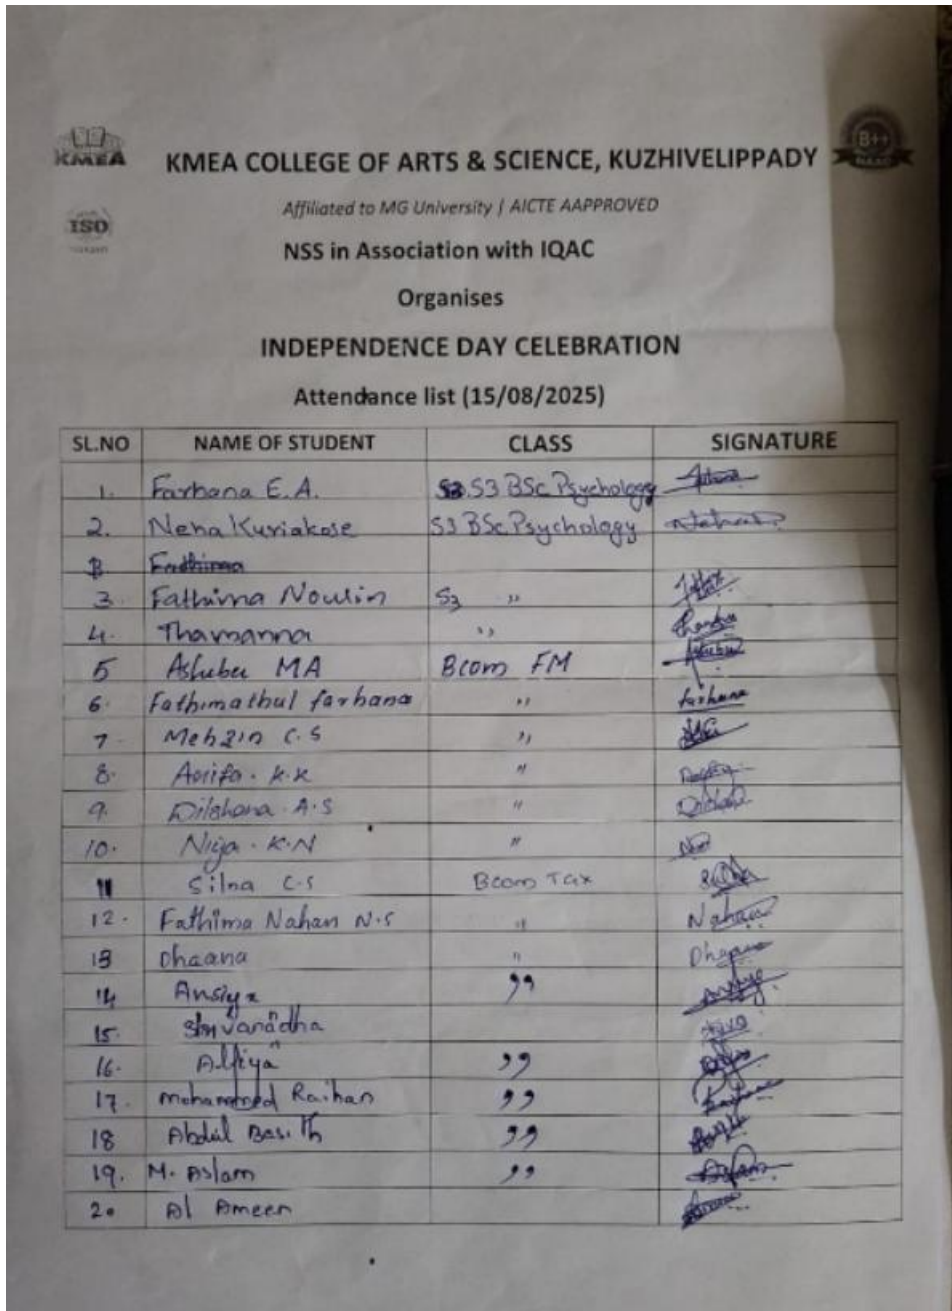 KMEA
B++
NAAC
KMEA COLLEGE OF ARTS & SCIENCE, KUZHIVELIPPADY
Affiliated to MG University / AICTE AAPPROVED
ISO
NSS in Association with IQAC
Organises
INDEPENDENCE DAY CELEBRATION
Attendance list (15/08/2025)
SL.NO NAME OF STUDENT CLASS SIGNATURE
1. Farhana E.A. S3 BSc Psychology
2. Neha Kuriakose S3 BSc Psychology
3. Fathima Noulin S3 "
4. Thamanna "
5 Ashuba MA Bcom FM
6. Fathimathul farhana " farhana
7 Mehzin C.S "
8. Asrifa. K.K "
9. Dilshana. A.S "
10. Niya. K.N "
11 Silna C.S Bcom Tax
12. Fathima Nahan N.S " Nahan
13 Dhaana " Dhaana
14 Ansiya "
15. Shivanadha
16. Alfiya "
17. Mohammed Raihan "
18 Abdul Basith "
19. M. Aslam " Aslam
20 Al Ameen